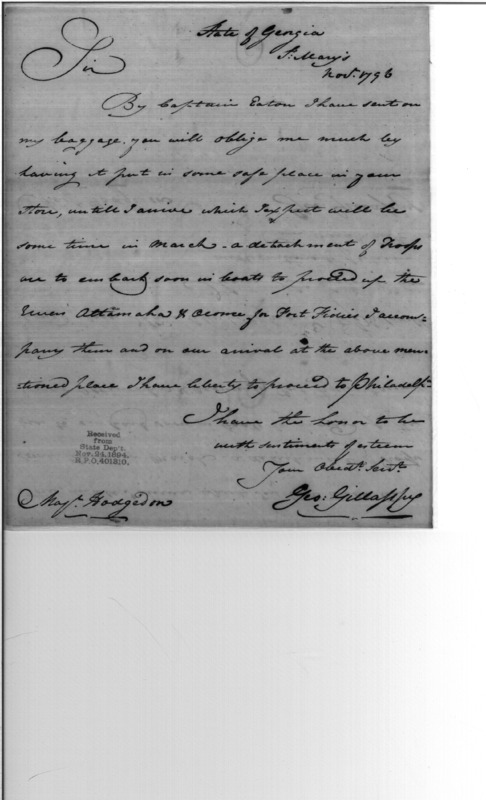 State of Georgia
St. Marys
Novr. 1796
Sir
By Captain Eaton I have sent on
my baggage. you will oblige me much by
having it put in some safe place in your
Store, untill I arive which I expect will be
some time in March. a detachment of Troops
are to embark soon in boats to proceed up the
Attamaha & Oconee, for Fort Fidies I accom-
pany them and on our arival at the above men-
tioned place I have liberty to proceed to Philadelpa
I have the honor to be
with sentiments of esteem
Your Obedt. Servt.
Geo: Gillaspy
Majr. Hodgedon
Received
from
State Dep't.
Nov. 24, 1894.
R.P.O. 401210.